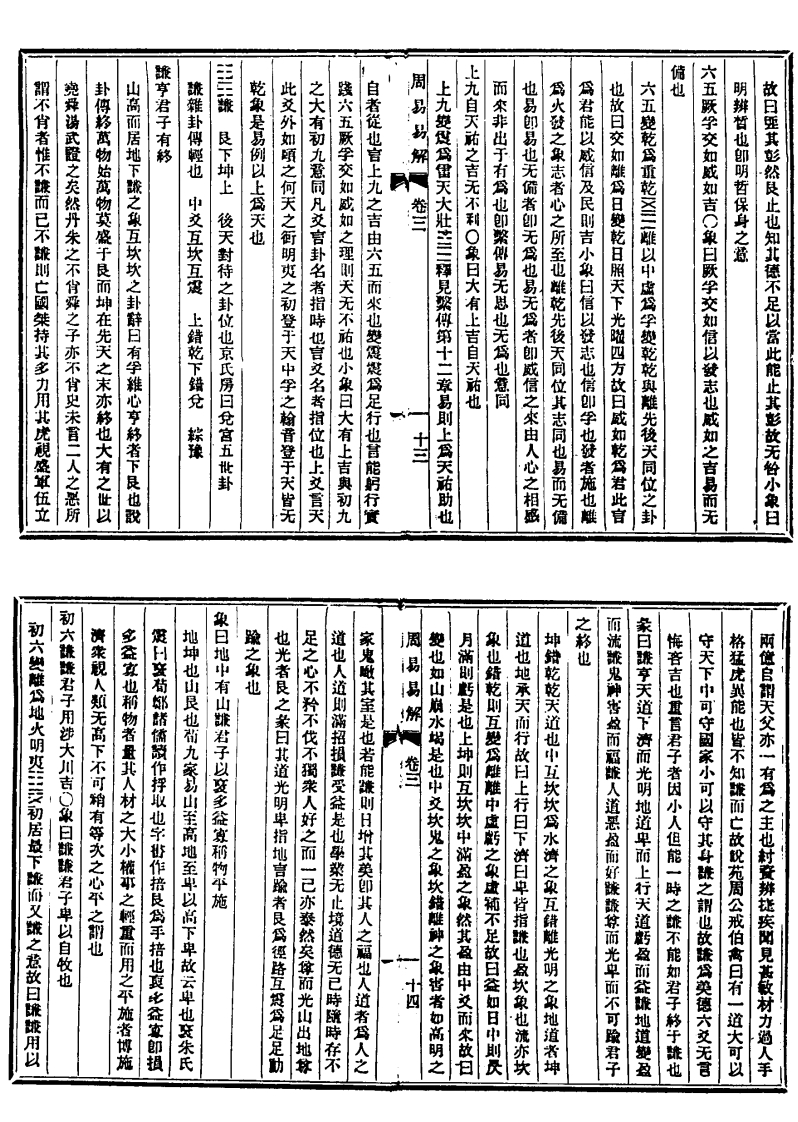 故曰匪其彭然艮止也知其德不足以當此能止其彭故无咎小象曰
明辨晢也卽明哲保身之意
六五厥孚交如威如吉○象曰厥孚交如信以發志也威如之吉易而无
備也
六五變乾爲重乾離以中虛爲孚變乾乾與離先後天同位之卦
也故曰交如離爲日變乾日照天下光曜四方故曰威如乾爲君此言
爲君能以威信及民則吉小象曰信以發志也信卽孚也發者施也離
爲火發之象志者心之所至也離乾先後天同位其志同也易而无備
也易卽易也无備者卽无爲也易无爲者卽威信之來由人心之相感
而來非出于有爲也卽繫傳易无思也无爲也意同
上九自天祐之吉无不利○象曰大有上吉自天祐也
上九變震爲雷天大壯釋見繫傳第十二章易則上爲天祐助也
周易易解 卷三 十三
自者從也言上九之吉由六五而來也變震震爲足行也言能躬行實
踐六五厥孚交如威如之理則天无不祐也小象曰大有上吉與初九
之大有初九意同凡爻言卦名者指時也言爻名者指位也上爻言天
此爻外如頤之何天之衢明夷之初登于天中孚之翰音登于天皆无
乾象是易例以上爲天也
謙 艮下坤上 後天對待之卦位也京氏房曰兌宮五世卦
謙雜卦傳輕也 中爻互坎互震 上錯乾下錯兌 綜豫
謙亨君子有終
山高而居地下謙之象互坎坎之卦辭曰有孚維心亨終者下艮也說
卦傳終萬物始萬物莫盛于艮而坤在先天之末亦終也大有之世以
堯舜湯武證之矣然丹朱之不肖舜之子亦不肖史未言二人之惡所
謂不肖者惟不謙而已不謙則亡國桀持其多力用其虎視盛軍伍立
兩億自謂天父亦一有爲之主也紂資辨捷疾聞見甚敏材力過人手
格猛虎異能也皆不知謙而亡故說苑周公戒伯禽曰有一道大可以
守天下中可守國家小可以守其身謙之謂也故謙爲美德六爻无言
悔吝吉也重言君子者因小人但能一時之謙不能如君子終于謙也
彖曰謙亨天道下濟而光明地道卑而上行天道虧盈而益謙地道變盈
而流謙鬼神害盈而福謙人道惡盈而好謙謙尊而光卑而不可踰君子
之終也
坤錯乾乾天道也中互坎坎爲水濟之象互錯離光明之象地道者坤
道也地承天而行故曰上行曰下濟曰卑皆指謙也盈坎象也流亦坎
象也錯乾則互變爲離離中虛虧之象虛補不足故曰益如日中則昃
月滿則虧是也上坤則互坎坎中滿盈之象然其盈由中爻而來故曰
變也如山崩水竭是也中爻坎鬼之象坎錯離神之象害者如高明之
周易易解 卷三 十四
家鬼瞰其室是也若能謙則日增其美卽其人之福也人道者爲人之
道也人道則滿招損謙受益是也學業无止境道德无已時隨時存不
足之心不矜不伐不獨衆人好之而一己亦泰然矣尊而光山出地尊
也光者艮之彖曰其道光明卑指地言踰者艮爲徑路互震爲足足動
踰之象也
象曰地中有山謙君子以裒多益寡稱物平施
地坤也山艮也荀九家易山至高地至卑以高下卑故云卑也裒朱氏
震曰裒荀鄭諸儒讀作捊取也字書作掊艮爲手掊也裒多益寡卽損
多益寡也稱物者量其人材之大小權事之輕重而用之平施者博施
濟衆視人類无高下不可稍有等次之心平之謂也
初六謙謙君子用涉大川吉○象曰謙謙君子卑以自牧也
初六變離爲地火明夷初居最下謙而又謙之意故曰謙謙用以